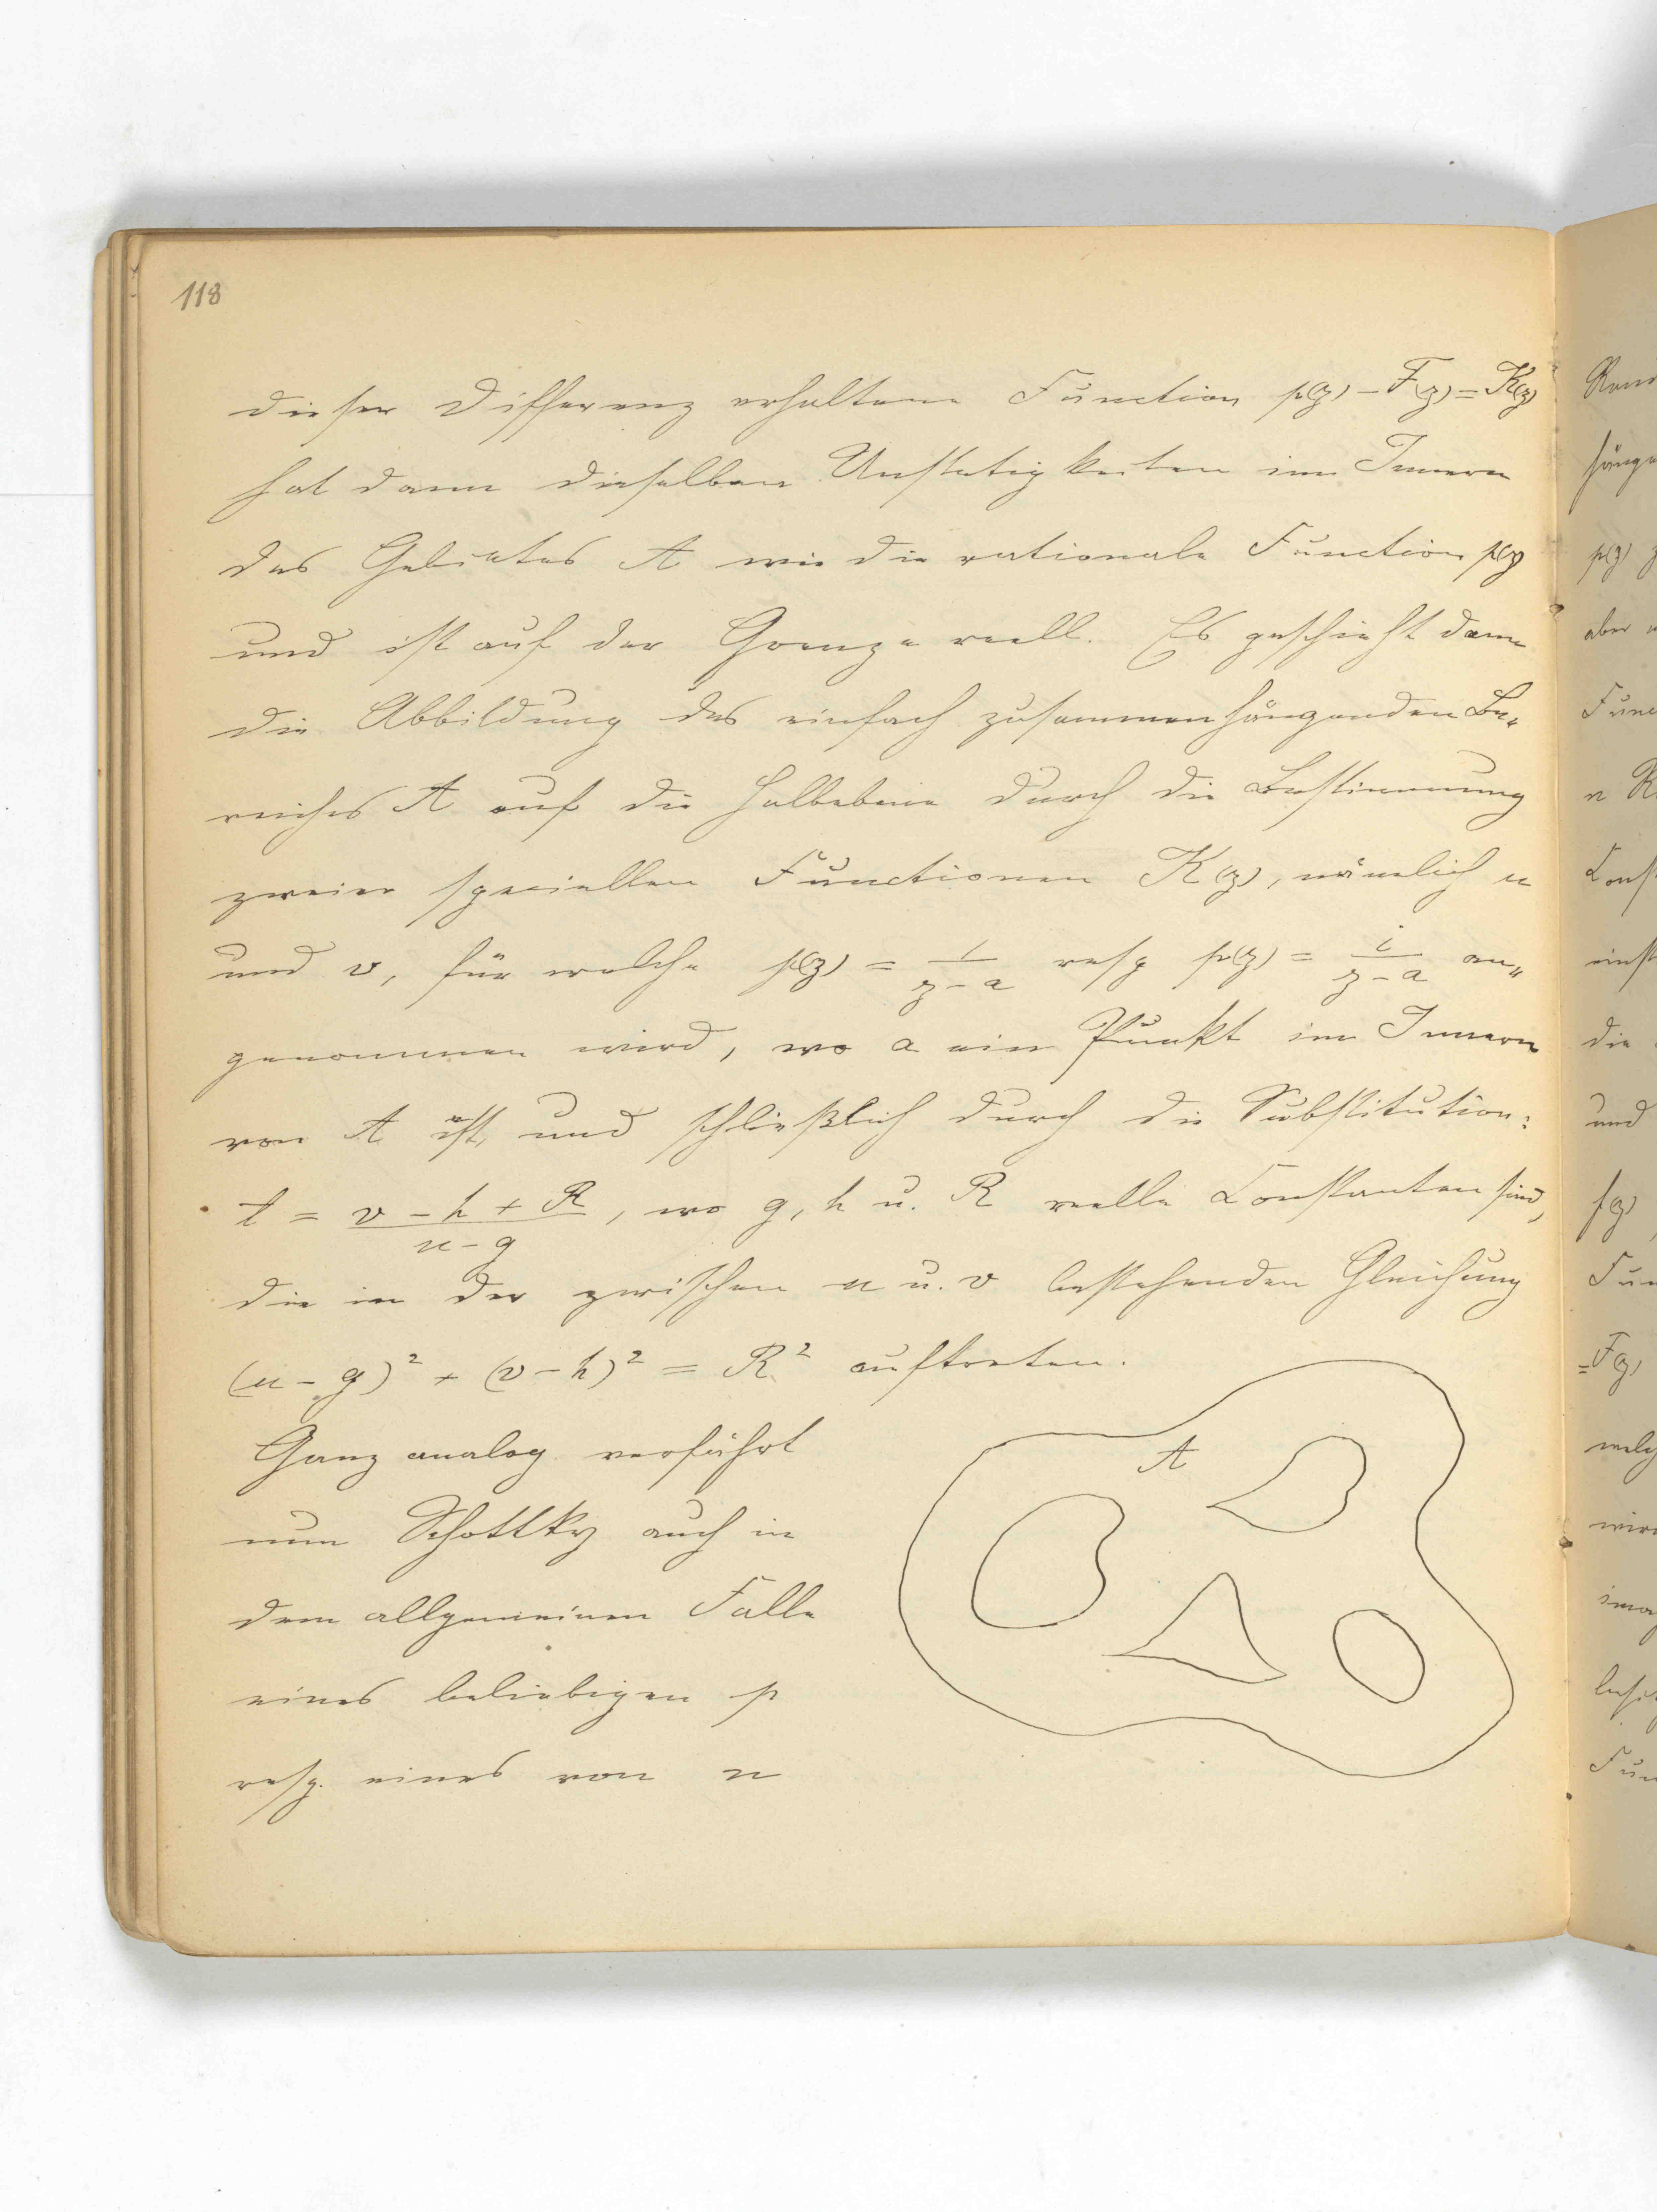 118
dieser Differenz erhaltene Function p(z) – F(z) = K(z)
hat dann dieselben Unstetigkeiten im Innern
des Gebietes A wie die rationale Function p(z)
und ist auf der Grenze reell. Es geschieht dann
die Abbildung des einfach zusammenhängenden Be„
reiches A auf die Halbebene durch die Bestimmung
zweier speciellen Functionen K(z), nämlich u
und v, für welche p(z) = 1/(z–a) resp p(z) = i/(z–a) an„
genommen wird, wo a ein Punkt im Innern
von A ist, und schließlich durch die Substitution:
t = (v – h + R)/(u – g), wo g, h u. R reelle Constanten sind,
die in der zwischen u u. v bestehenden Gleichung
(u – g)² + (v – h)² = R² auftreten.
A
Ganz analog verfährt
nun Schottky auch in
dem allgemeinen Falle
eines beliebigen p
resp. eines von n
p(z)
aber
die
und
f(z)
=F(z)